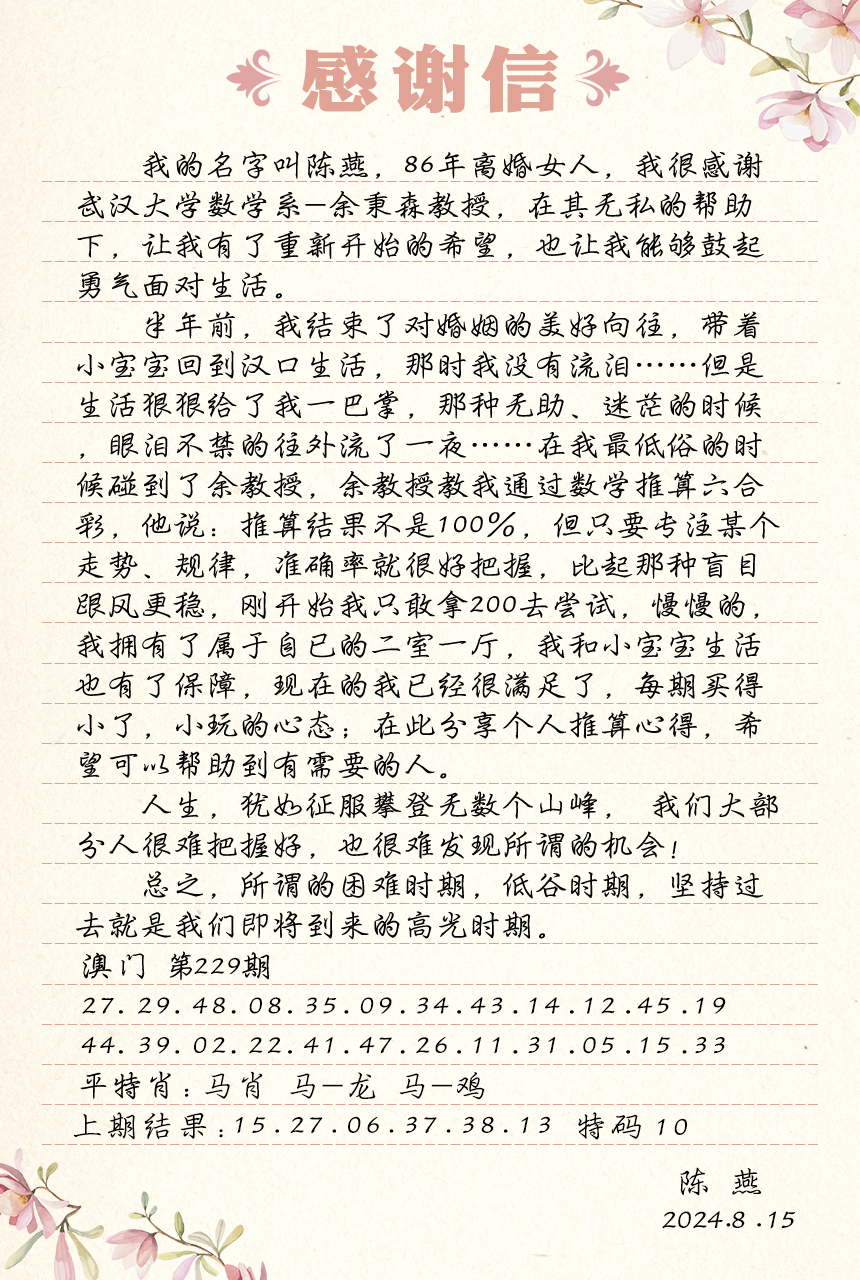 感谢信
我的名字叫陈燕，86年离婚女人，我很感谢
武汉大学数学系—余秉森教授，在其无私的帮助
下，让我有了重新开始的希望，也让我能够鼓起
勇气面对生活。
半年前，我结束了对婚姻的美好向往，带着
小宝宝回到汉口生活，那时我没有流泪……但是
生活狠狠给了我一巴掌，那种无助、迷茫的时候
，眼泪不禁的往外流了一夜……在我最低俗的时
候碰到了余教授，余教授教我通过数学推算六合
彩，他说：推算结果不是100%，但只要专注某个
走势、规律，准确率就很好把握，比起那种盲目
跟风更稳，刚开始我只敢拿200去尝试，慢慢的，
我拥有了属于自已的二室一厅，我和小宝宝生活
也有了保障，现在的我已经很满足了，每期买得
小了，小玩的心态；在此分享个人推算心得，希
望可以帮助到有需要的人。
人生，犹如征服攀登无数个山峰， 我们大部
分人很难把握好，也很难发现所谓的机会！
总之，所谓的困难时期，低谷时期，坚持过
去就是我们即将到来的高光时期。
澳门 第229期
27.29.48.08.35.09.34.43.14.12.45.19
44.39.02.22.41.47.26.11.31.05.15.33
平特肖：马肖 马—龙 马—鸡
上期结果：15.27.06.37.38.13 特码 10
陈 燕
2024.8.15